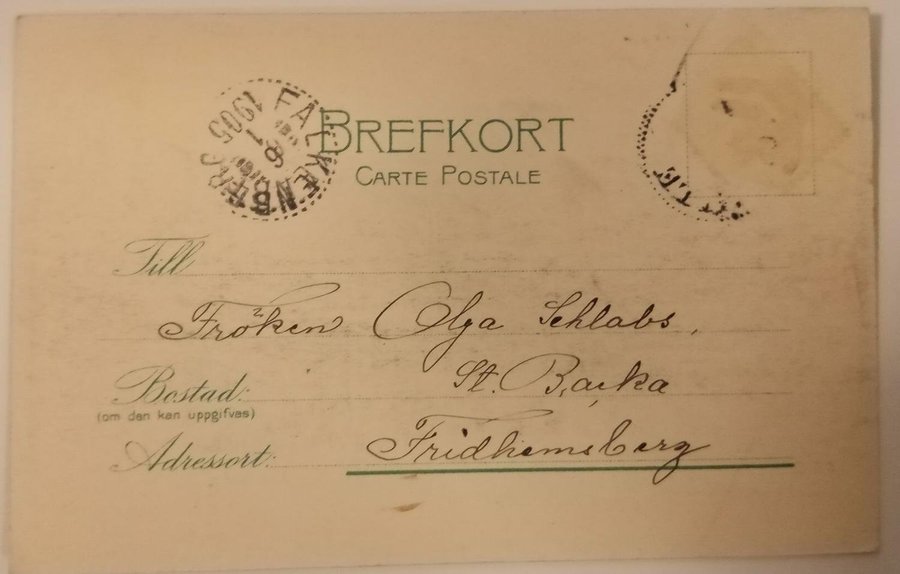 FALKENBERG
8 1
1905
BREFKORT
CARTE POSTALE
Till
Fröken Olga Schlabs,
Bostad: St. Backa
(om den kan uppgifvas)
Adressort: Fridhemsberg